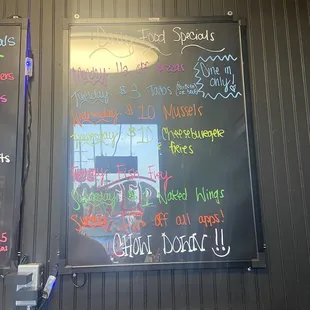 Food Specials
Monday 1/2 off
Tuesday $3 Tacos
Dine in
only!
Wednesday $10 Mussels
Thursday $10 Cheeseburger &
fries
Friday Fish Fry
Saturday $1 Naked Wings
Sunday off all apps!
CHOW DOWN!!